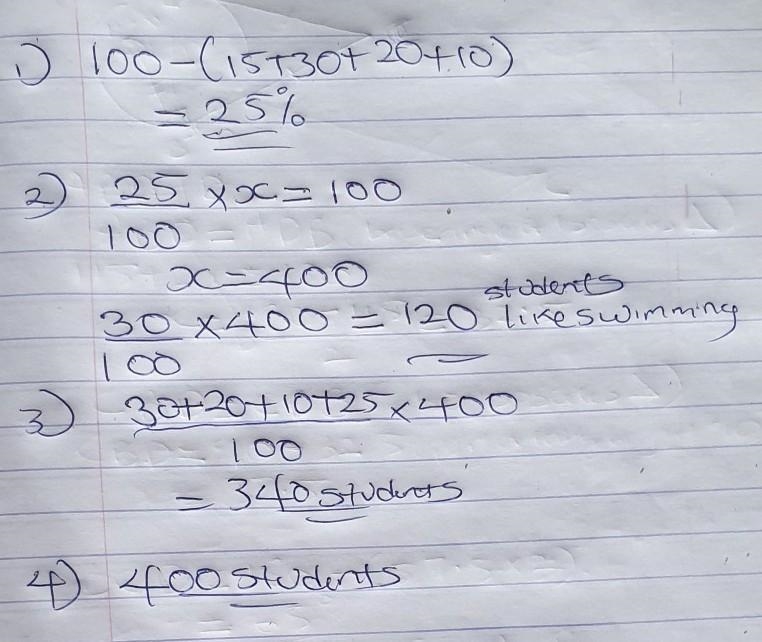 1) 100-(15+30+20+10)
= 25%
2) 25 × x = 100
100
x = 400
students
30 × 400 = 120 like swimming
100
3) 30+20+10+25 × 400
100
= 340 students
4) 400 students